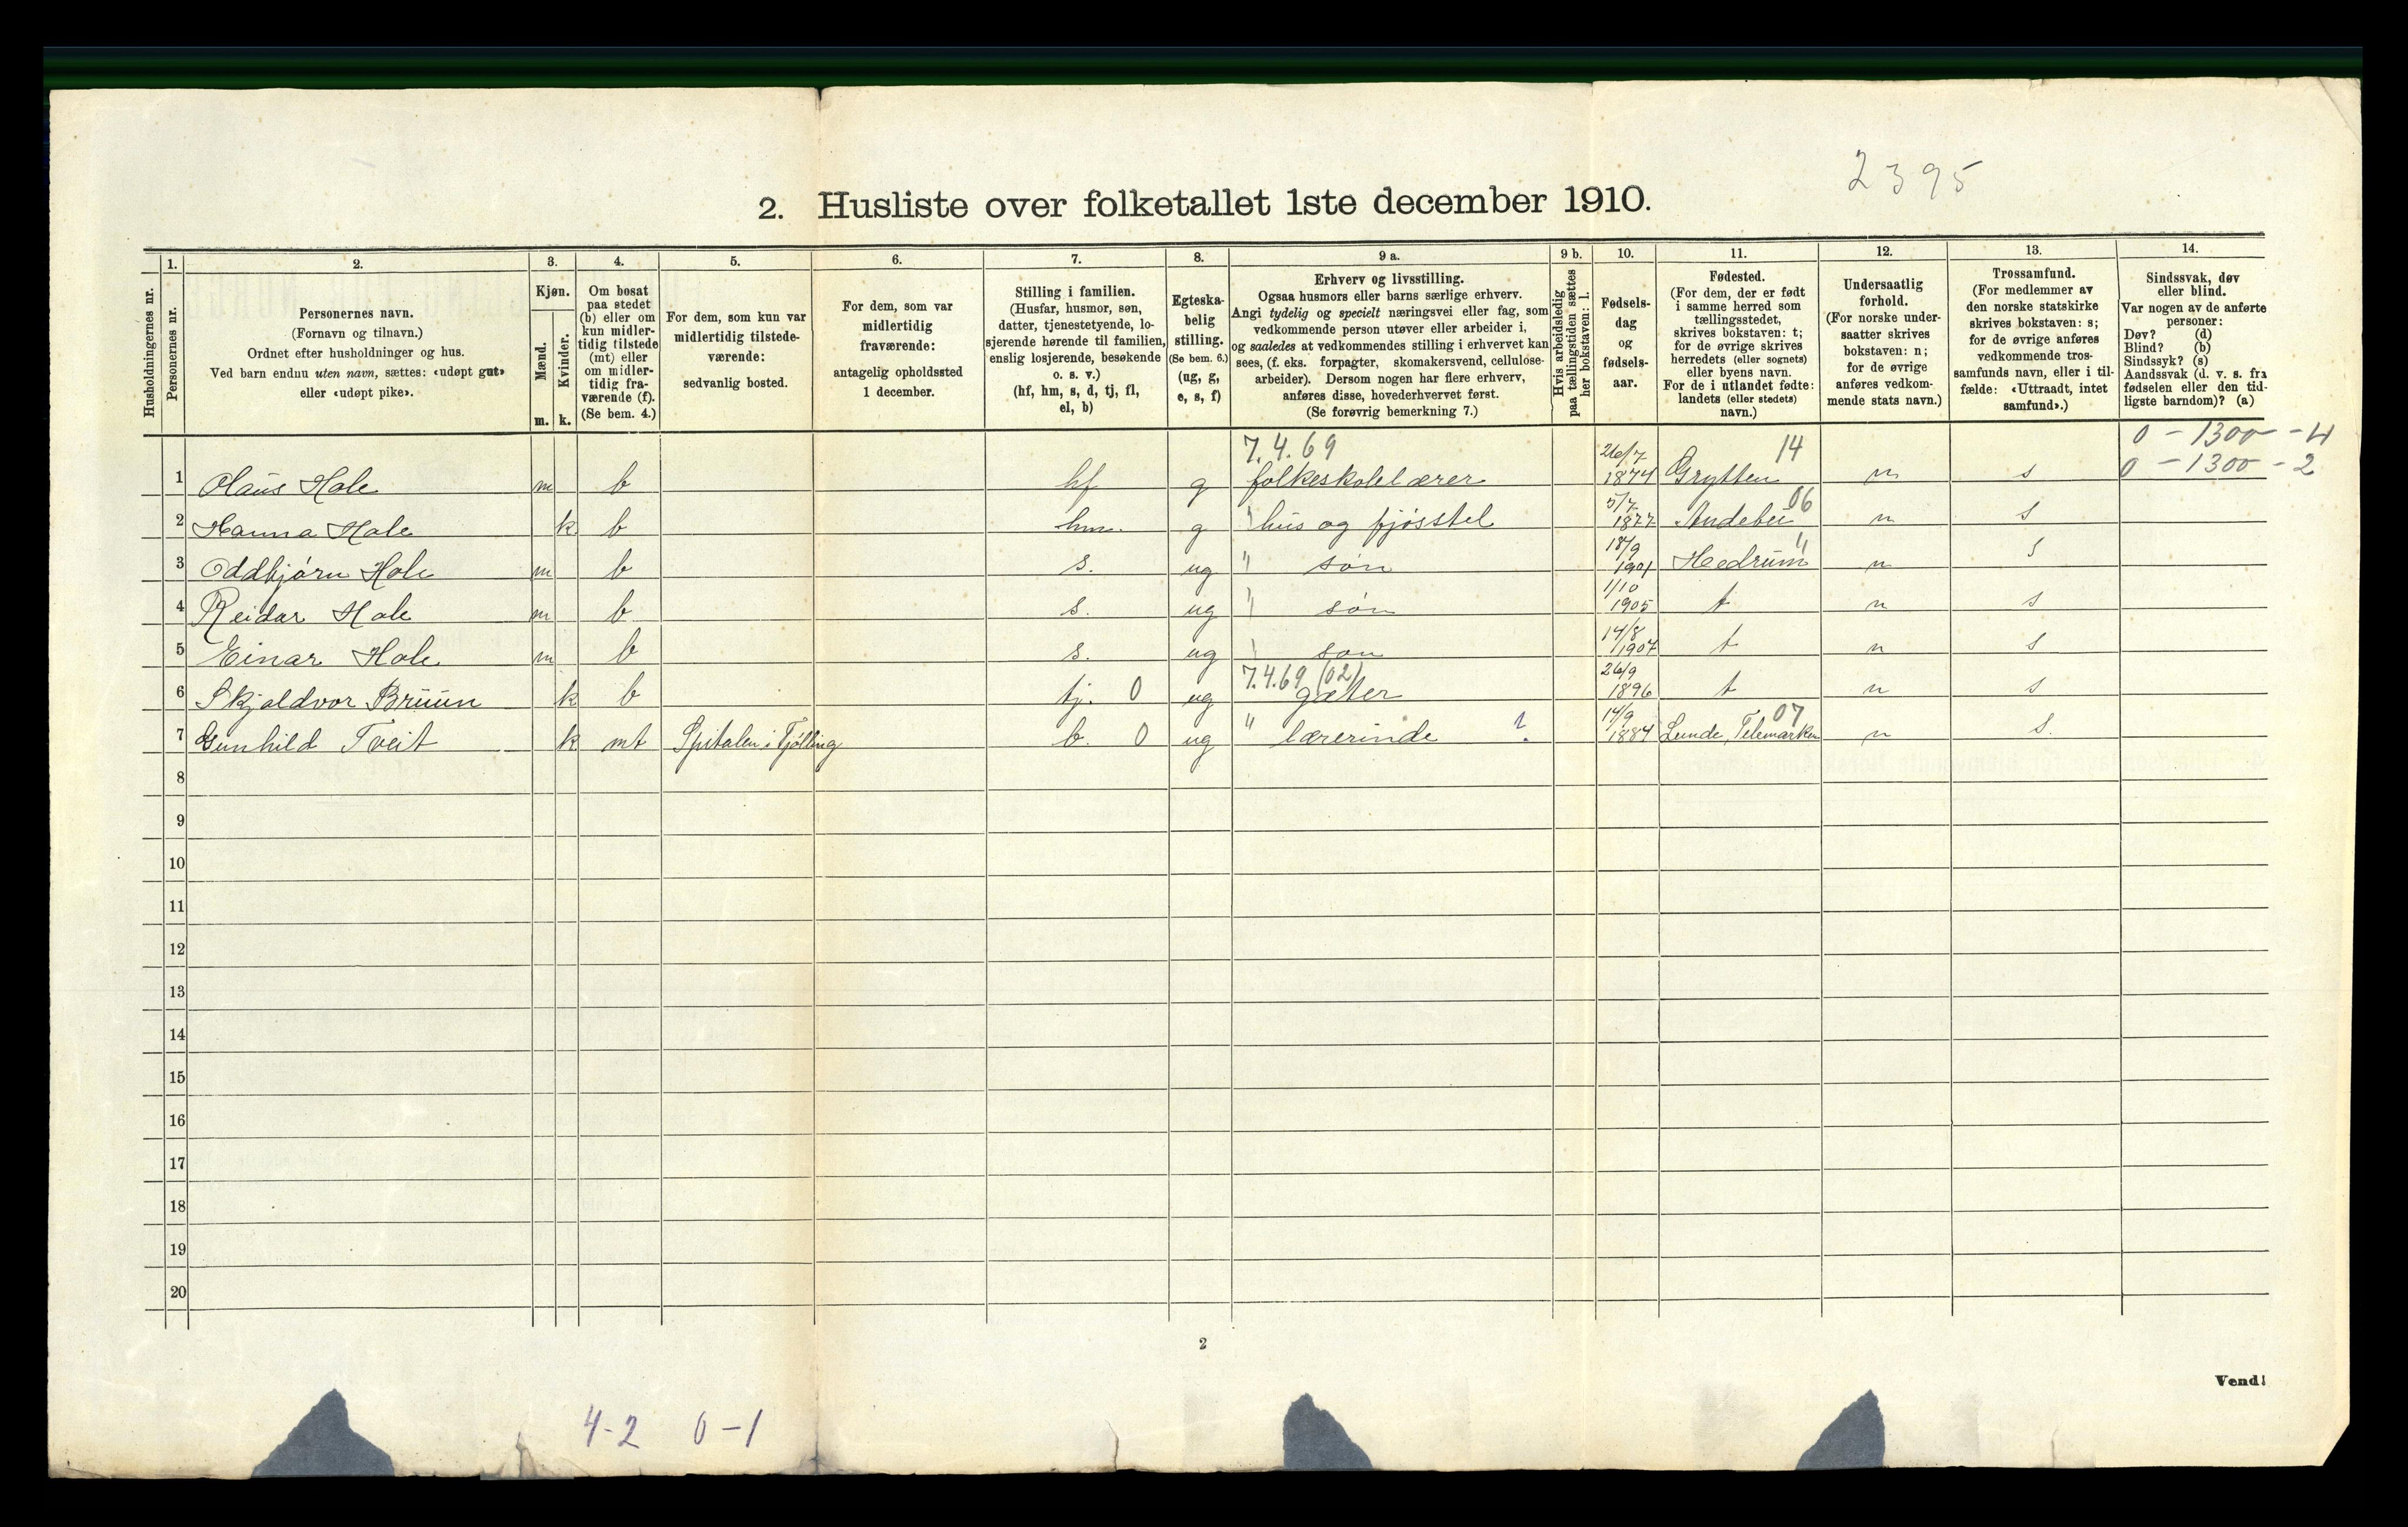 2395
2. Husliste over folketallet 1ste december 1910.
Husholdningernes nr.
1. Personernes nr.
2. Personernes navn.
(Fornavn og tilnavn.)
Ordnet efter husholdninger og hus.
Ved barn endnu uten navn, sættes: «udøpt gut»
eller «udøpt pike».
3. Kjøn.
Mænd. m.
Kvinder. k.
4. Om bosat
paa stedet
(b) eller om
kun midler-
tidig tilstede
(mt) eller
om midler-
tidig fra-
værende (f).
(Se bem. 4.)
5. For dem, som kun var
midlertidig tilstede-
værende:
sedvanlig bosted.
6. For dem, som var
midlertidig
fraværende:
antagelig opholdssted
1 december.
7. Stilling i familien.
(Husfar, husmor, søn,
datter, tjenestetyende, lo-
sjerende hørende til familien,
enslig losjerende, besøkende
o. s. v.)
(hf, hm, s, d, tj, fl,
el, b)
8. Egteska-
belig
stilling.
(Se bem. 6.)
(ug, g,
e, s, f)
9 a. Erhverv og livsstilling.
Ogsaa husmors eller barns særlige erhverv.
Angi tydelig og specielt næringsvei eller fag, som
vedkommende person utøver eller arbeider i,
og saaledes at vedkommendes stilling i erhvervet kan
sees, (f. eks. forpagter, skomakersvend, cellulose-
arbeider). Dersom nogen har flere erhverv,
anføres disse, hovederhvervet først.
(Se forøvrig bemerkning 7.)
9 b. Hvis arbeidsledig
paa tællingstiden sættes
her bokstaven: l.
10. Fødsels-
dag
og
fødsels-
aar.
11. Fødested.
(For dem, der er født
i samme herred som
tællingsstedet,
skrives bokstaven: t;
for de øvrige skrives
herredets (eller sognets)
eller byens navn.
For de i utlandet fødte:
landets (eller stedets)
navn.)
12. Undersaatlig
forhold.
(For norske under-
saatter skrives
bokstaven: n;
for de øvrige
anføres vedkom-
mende stats navn.)
13. Trossamfund.
(For medlemmer av
den norske statskirke
skrives bokstaven: s;
for de øvrige anføres
vedkommende tros-
samfunds navn, eller i til-
fælde: «Uttraadt, intet
samfund».)
14. Sindssvak, døv
eller blind.
Var nogen av de anførte
personer:
Døv? (d)
Blind? (b)
Sindssyk? (s)
Aandssvak (d. v. s. fra
fødselen eller den tid-
ligste barndom)? (a)
7.4.69 14 0 - 1300 - 4
1 Olaus Hole m b hf g folkeskolelærer 26/7 1874 Grytten n s 0 - 1300 - 2
06
2 Hanna Hole k b hm. g " hus og fjøsstel 5/7 1877 Andebu n s
"
3 Oddbjørn Hole m b s. ug " søn 18/9 1901 Hedrum n s
4 Reidar Hole m b s. ug " søn 1/10 1905 t n s
5 Einar Hole m b s. ug " søn 14/8 1907 t n s
7.4.69 (02)
6 Skjoldvor Bruun k b tj. 0 ug gæter 26/9 1896 t n s
07
7 Gunhild Tveit k mt Spitalen i Tjølling b. 0 ug " lærerinde ? 14/9 1884 Lunde, Telemarken n s.
8
9
10
11
12
13
14
15
16
17
18
19
20
2
Vend!
4-2 0-1